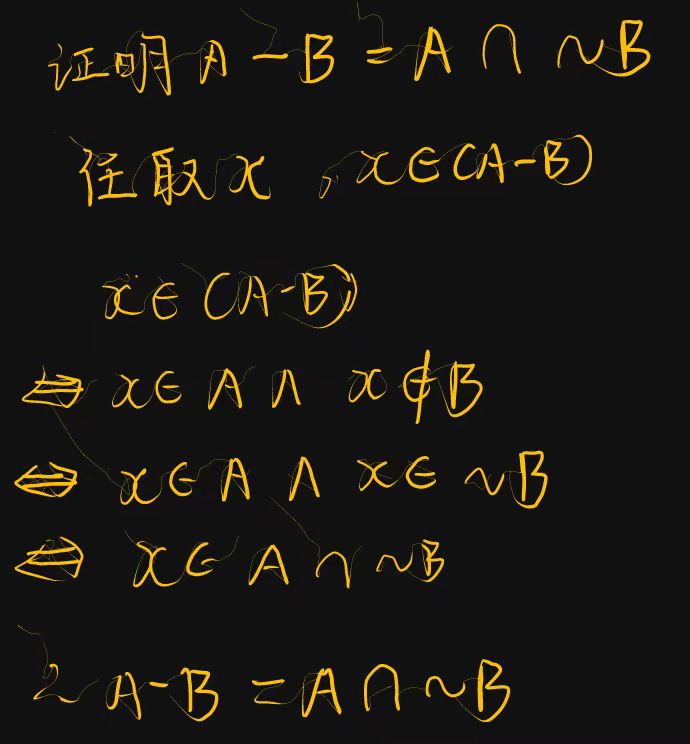 证明 A - B = A ∩ ~B
任取 x , x ∈ (A-B)
x ∈ (A-B)
⇔ x ∈ A ∧ x ∉ B
⇔ x ∈ A ∧ x ∈ ~B
⇔ x ∈ A ∩ ~B
A-B = A ∩ ~B